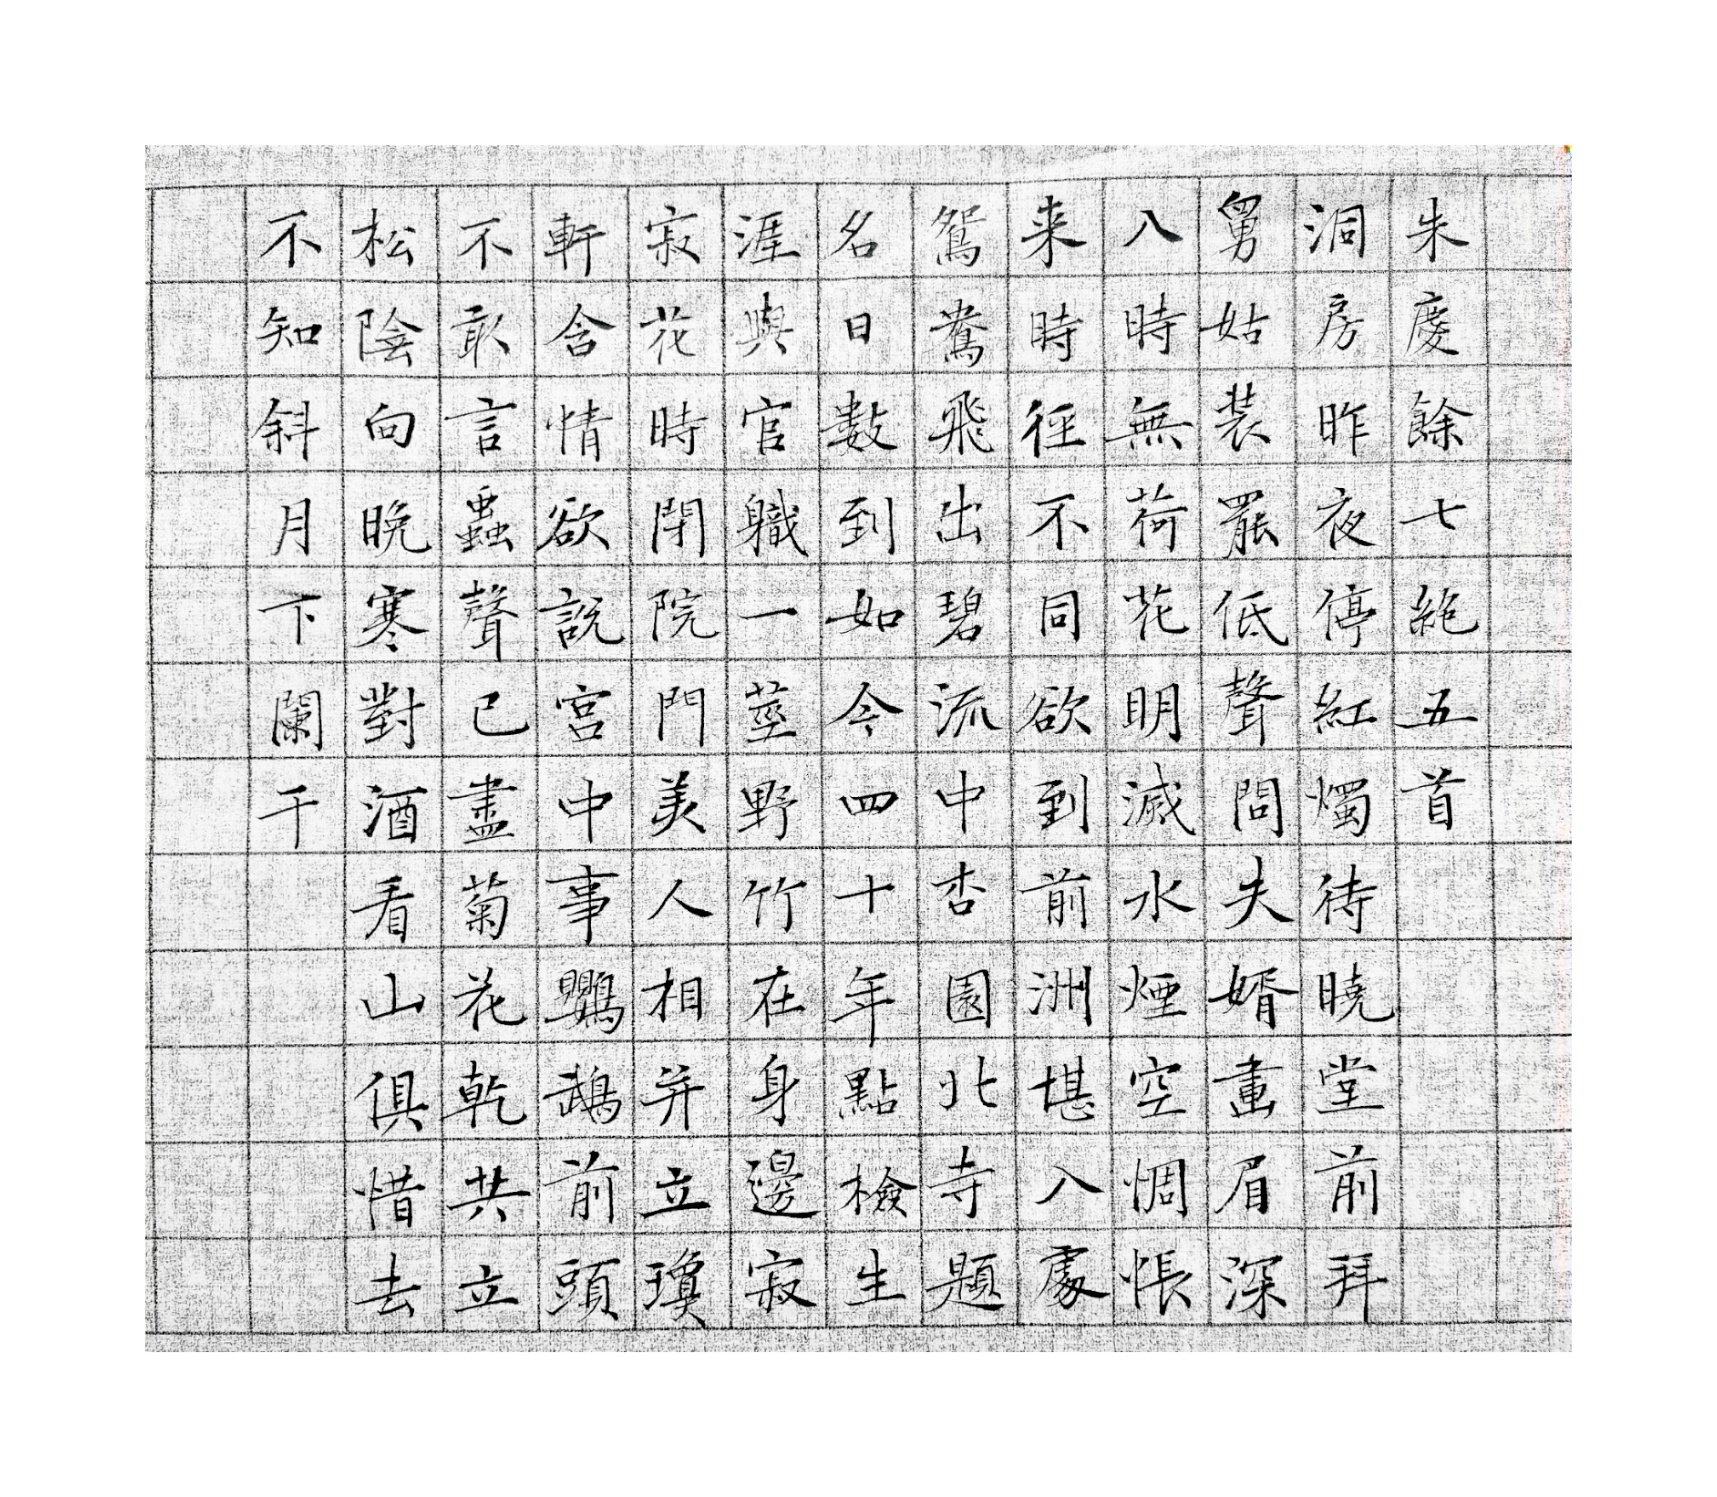 朱慶餘七絕五首
洞房昨夜停紅燭待曉堂前拜
舅姑装罷低聲問夫婿畫眉深
八時無荷花明滅水煙空惆悵
来時徑不同欲到前洲堪入處
鴛鴦飛出碧流中杏園北寺題
名日數到如今四十年點檢生
涯與官職一莖野竹在身邊寂
寂花時閉院門美人相并立瓊
軒含情欲說宮中事鸚鵡前頭
不敢言蟲聲已盡菊花乾共立
松陰向晚寒對酒看山俱惜去
不知斜月下闌干